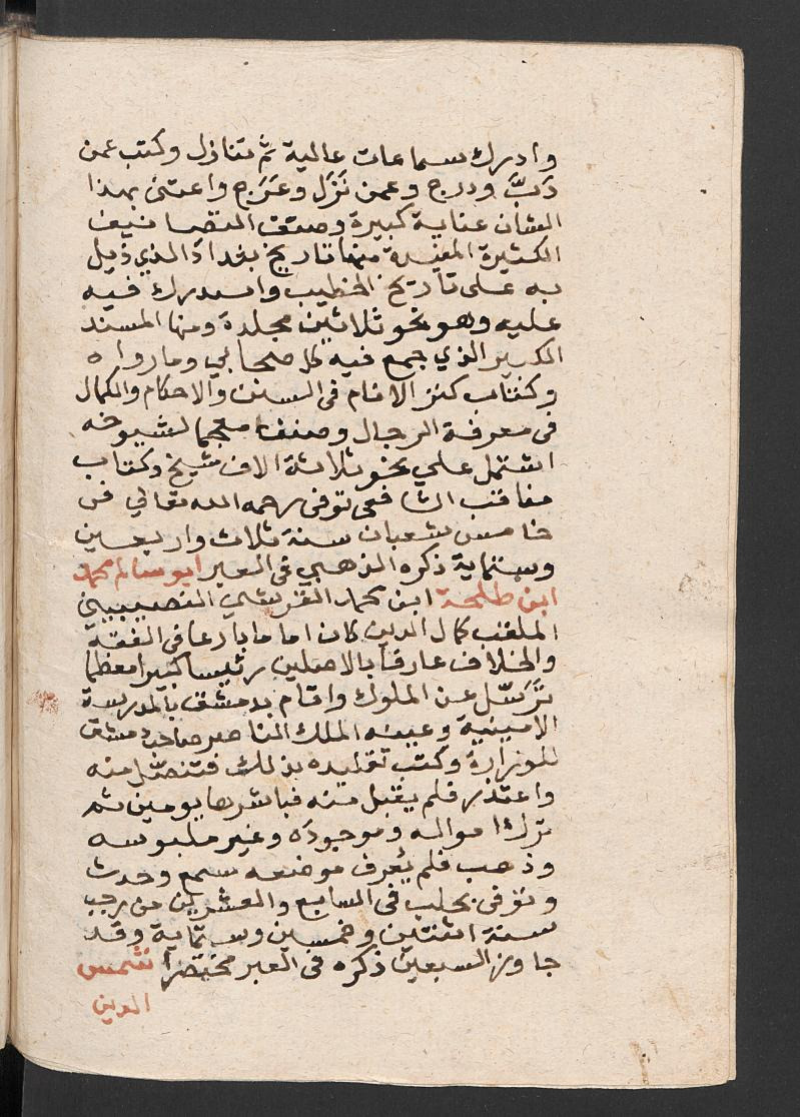 وادرك سماعات عالية ثم تنازل وكتب عمن
دَبَّ ودرج وعمن نَزَل وعَرَج واعتنى بهذا
الشان عناية كبيرة وصنف التصانيف
الكثيرة المفيدة منها تاريخ بغداد الذي ذيل
به على تاريخ الخطيب واستدرك فيه
عليه وهو نحو ثلاثين مجلدة ومنها المسند
الكبير الذي جمع فيه كل صحابي وما رواه
وكتاب كنز الامام فى السنن والاحكام والكمال
فى معرفة الرجال وصنف معجما لشيوخه
اشتمل علي نحو ثلاثة الاف شيخ وكتاب
مناقب الشافعى توفى رحمه الله تعالي فى
خامس شعبان سنة ثلاث واربعين
وستماية ذكره الذهبي فى العبر ابو سالم محمد
ابن طلحة ابن محمد القريشي النصيبيني
الملقب كمال الدين كان اماما بارعا فى الفقه
والخلاف عارفا بالاصلين رئيسا كبيرا معظما
تَرَسَّل عن الملوك واقام بدمشق بالمدرسة
الامينية وعينه الملك الناصر صاحب دمشق
للوزارة وكتب تقليده بذلك فتنصّل منه
واعتذر فلم يقبل منه فباشرها يومين ثم
ترك امواله وموجوده وغير ملبوسه
وذهب فلم يُعرف موضعه سمع وحدث
وتوفى بحلب فى السابع والعشرين من رجب
سنة اثنتين وخمسين وستماية وقد
جاوز السبعين ذكره فى العبر مختصرا شمس
الدين